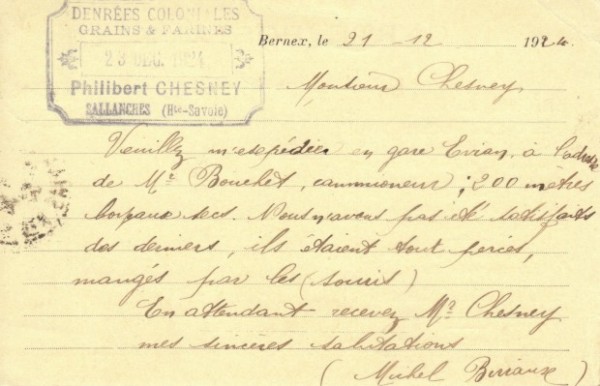 DENRÉES COLONIALES
GRAINS & FARINES
23 DEC. 1924
Philibert CHESNEY
SALLANCHES (Hte-Savoie)
Bernex, le 21 - 12 1924.
Monsieur Chesney
Veuillez m'expédier en gare Evian, à l'adresse
de Mr. Bouchet, camionneur, 200 mètres
secs. Nous n'avons pas été satisfaits
des derniers, ils étaient tout percés,
mangés par les (souris)
En attendant recevez Mr. Chesney
mes sincères salutations
(Michel